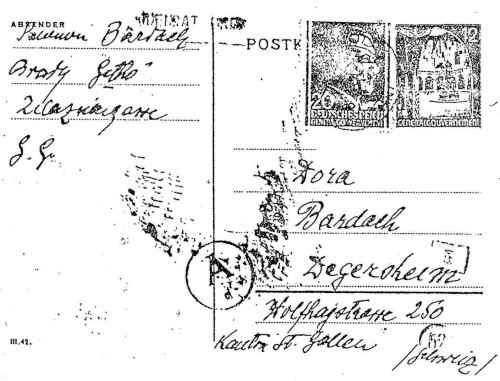 ABSENDER
JUDENRAT
Salomon Bardach
Brody Getto
G. G.
III.42.
POSTK
20
DEUTSCHES REICH
GENERALGOUVERNEMENT
12
GENERALGOUVERNEMENT
A
Dora
Bardach
Degersheim
Wolfhagstrasse 250
Kanton St. Gallen
/Schweiz/